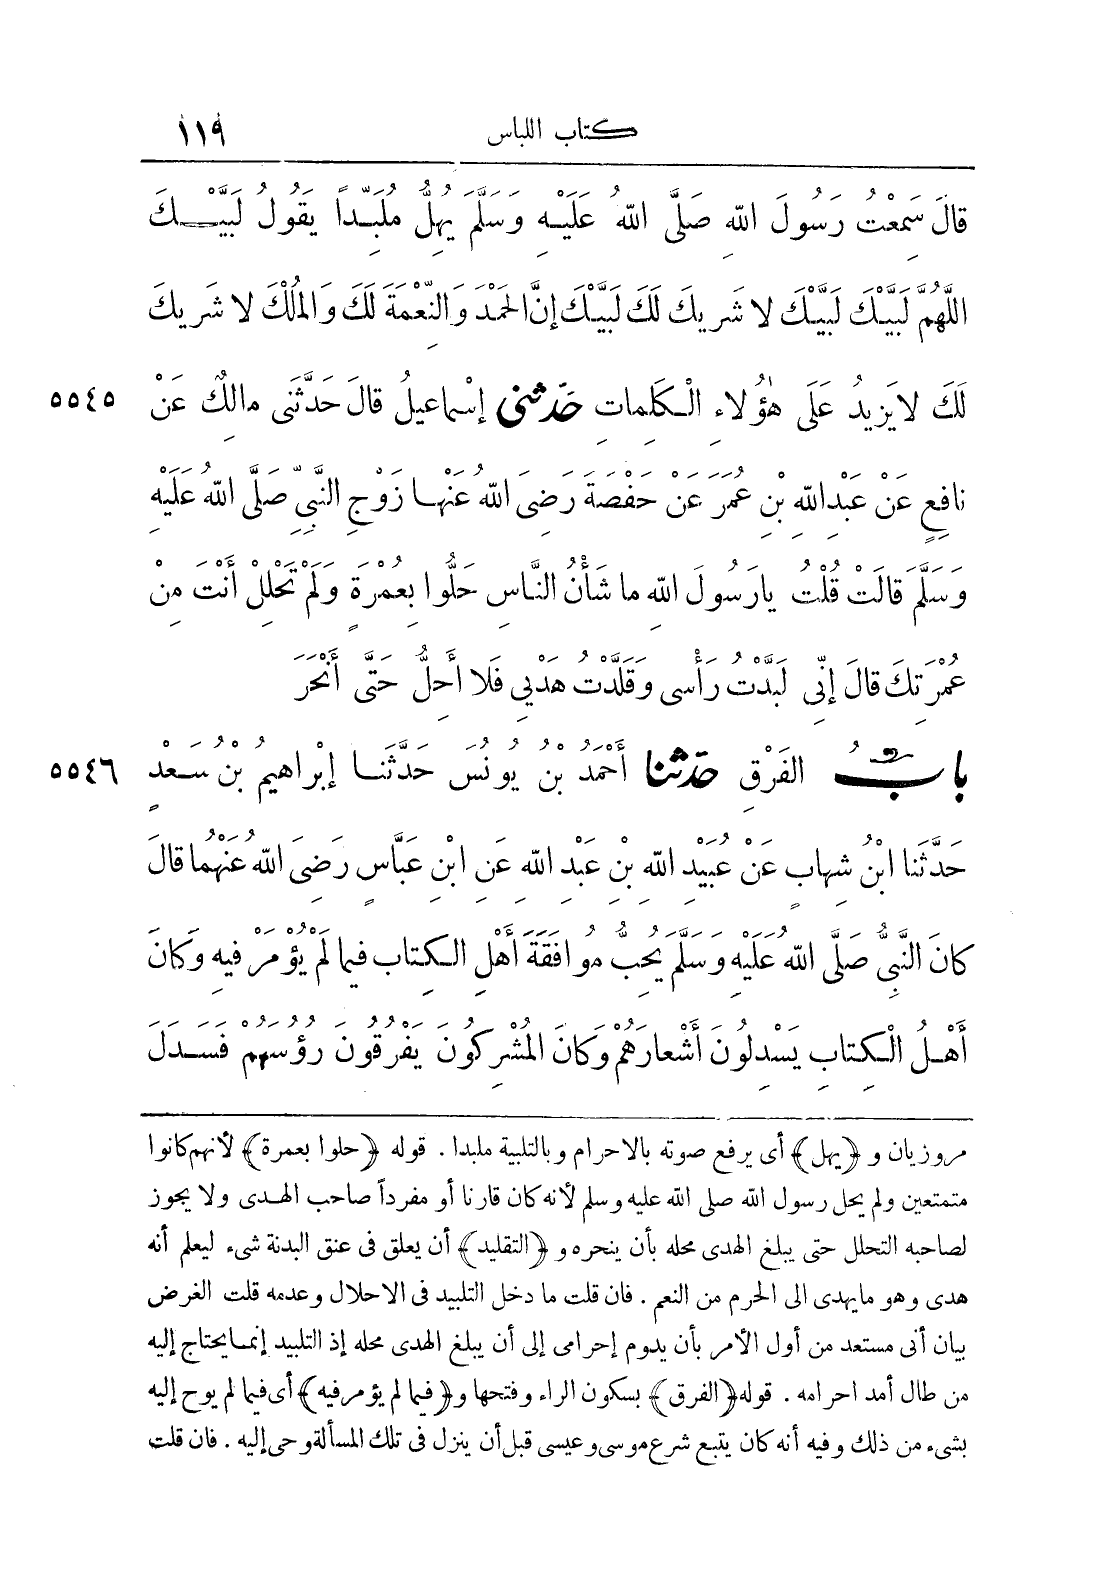 كتاب اللباس ١١٩
قالَ سَمِعْتُ رَسُولَ اللهِ صَلَّى اللهُ عَلَيْهِ وَسَلَّمَ يُهِلُّ مُلَبِّداً يَقُولُ لَبَّيْكَ
اللَّهُمَّ لَبَّيْكَ لَبَّيْكَ لا شَرِيكَ لَكَ لَبَّيْكَ إِنَّ الحَمْدَ وَالنِّعْمَةَ لَكَ وَالمُلْكَ لا شَرِيكَ
لَكَ لايَزِيدُ عَلَى هٰؤُلاءِ الْكَلِماتِ حَدَّثَنِى إسْماعِيلُ قالَ حَدَّثَنِى مالِكٌ عَنْ ٥٥٤٥
نافِعٍ عَنْ عَبْدِ اللهِ بْنِ عُمَرَ عَنْ حَفْصَةَ رَضِىَ اللهُ عَنْها زَوْجِ النَّبِىِّ صَلَّى اللهُ عَلَيْهِ
وَسَلَّمَ قالَتْ قُلْتُ يارَسُولَ اللهِ ما شَأْنُ النَّاسِ حَلُّوا بِعُمْرَةٍ وَلَمْ تَحْلِلْ أَنْتَ مِنْ
عُمْرَتِكَ قالَ إنِّى لَبَّدْتُ رَأْسِى وَقَلَّدْتُ هَدْيِى فَلا أَحِلُّ حَتَّى أَنْحَرَ
بابُ الفَرْقِ حَدَّثَنا أَحْمَدُ بْنُ يُونُسَ حَدَّثَنا إبْراهِيمُ بْنُ سَعْدٍ ٥٥٤٦
حَدَّثَنا ابْنُ شِهابٍ عَنْ عُبَيْدِ اللهِ بْنِ عَبْدِ اللهِ عَنِ ابْنِ عَبَّاسٍ رَضِىَ اللهُ عَنْهُما قالَ
كانَ النَّبِىُّ صَلَّى اللهُ عَلَيْهِ وَسَلَّمَ يُحِبُّ مُوافَقَةَ أَهْلِ الكِتابِ فِيما لَمْ يُؤْمَرْ فِيهِ وَكانَ
أَهْلُ الْكِتابِ يَسْدِلُونَ أَشْعارَهُمْ وَكانَ الْمُشْرِكُونَ يَفْرُقُونَ رُؤُسَهُمْ فَسَدَلَ
مروزيان و ﴿يهل﴾ أى يرفع صوته بالاحرام وبالتلبية ملبدا . قوله ﴿حلوا بعمرة﴾ لأنهم كانوا
متمتعين ولم يحل رسول الله صلى الله عليه وسلم لأنه كان قارنا أو مفرداً صاحب الهدى ولا يجوز
لصاحبه التحلل حتى يبلغ الهدى محله بأن ينحره و ﴿التقليد﴾ أن يعلق فى عنق البدنة شىء ليعلم أنه
هدى وهو مايهدى الى الحرم من النعم . فان قلت ما دخل التلبيد فى الاحلال وعدمه قلت الغرض
بيان أنى مستعد من أول الأمر بأن يدوم إحرامى إلى أن يبلغ الهدى محله إذ التلبيد إنما يحتاج إليه
من طال أمد احرامه . قوله ﴿الفرق﴾ بسكون الراء وفتحها و ﴿فيما لم يؤمر فيه﴾ أى فيما لم يوح إليه
بشىء من ذلك وفيه أنه كان يتبع شرع موسى وعيسى قبل أن ينزل فى تلك المسألة وحى إليه . فان قلت